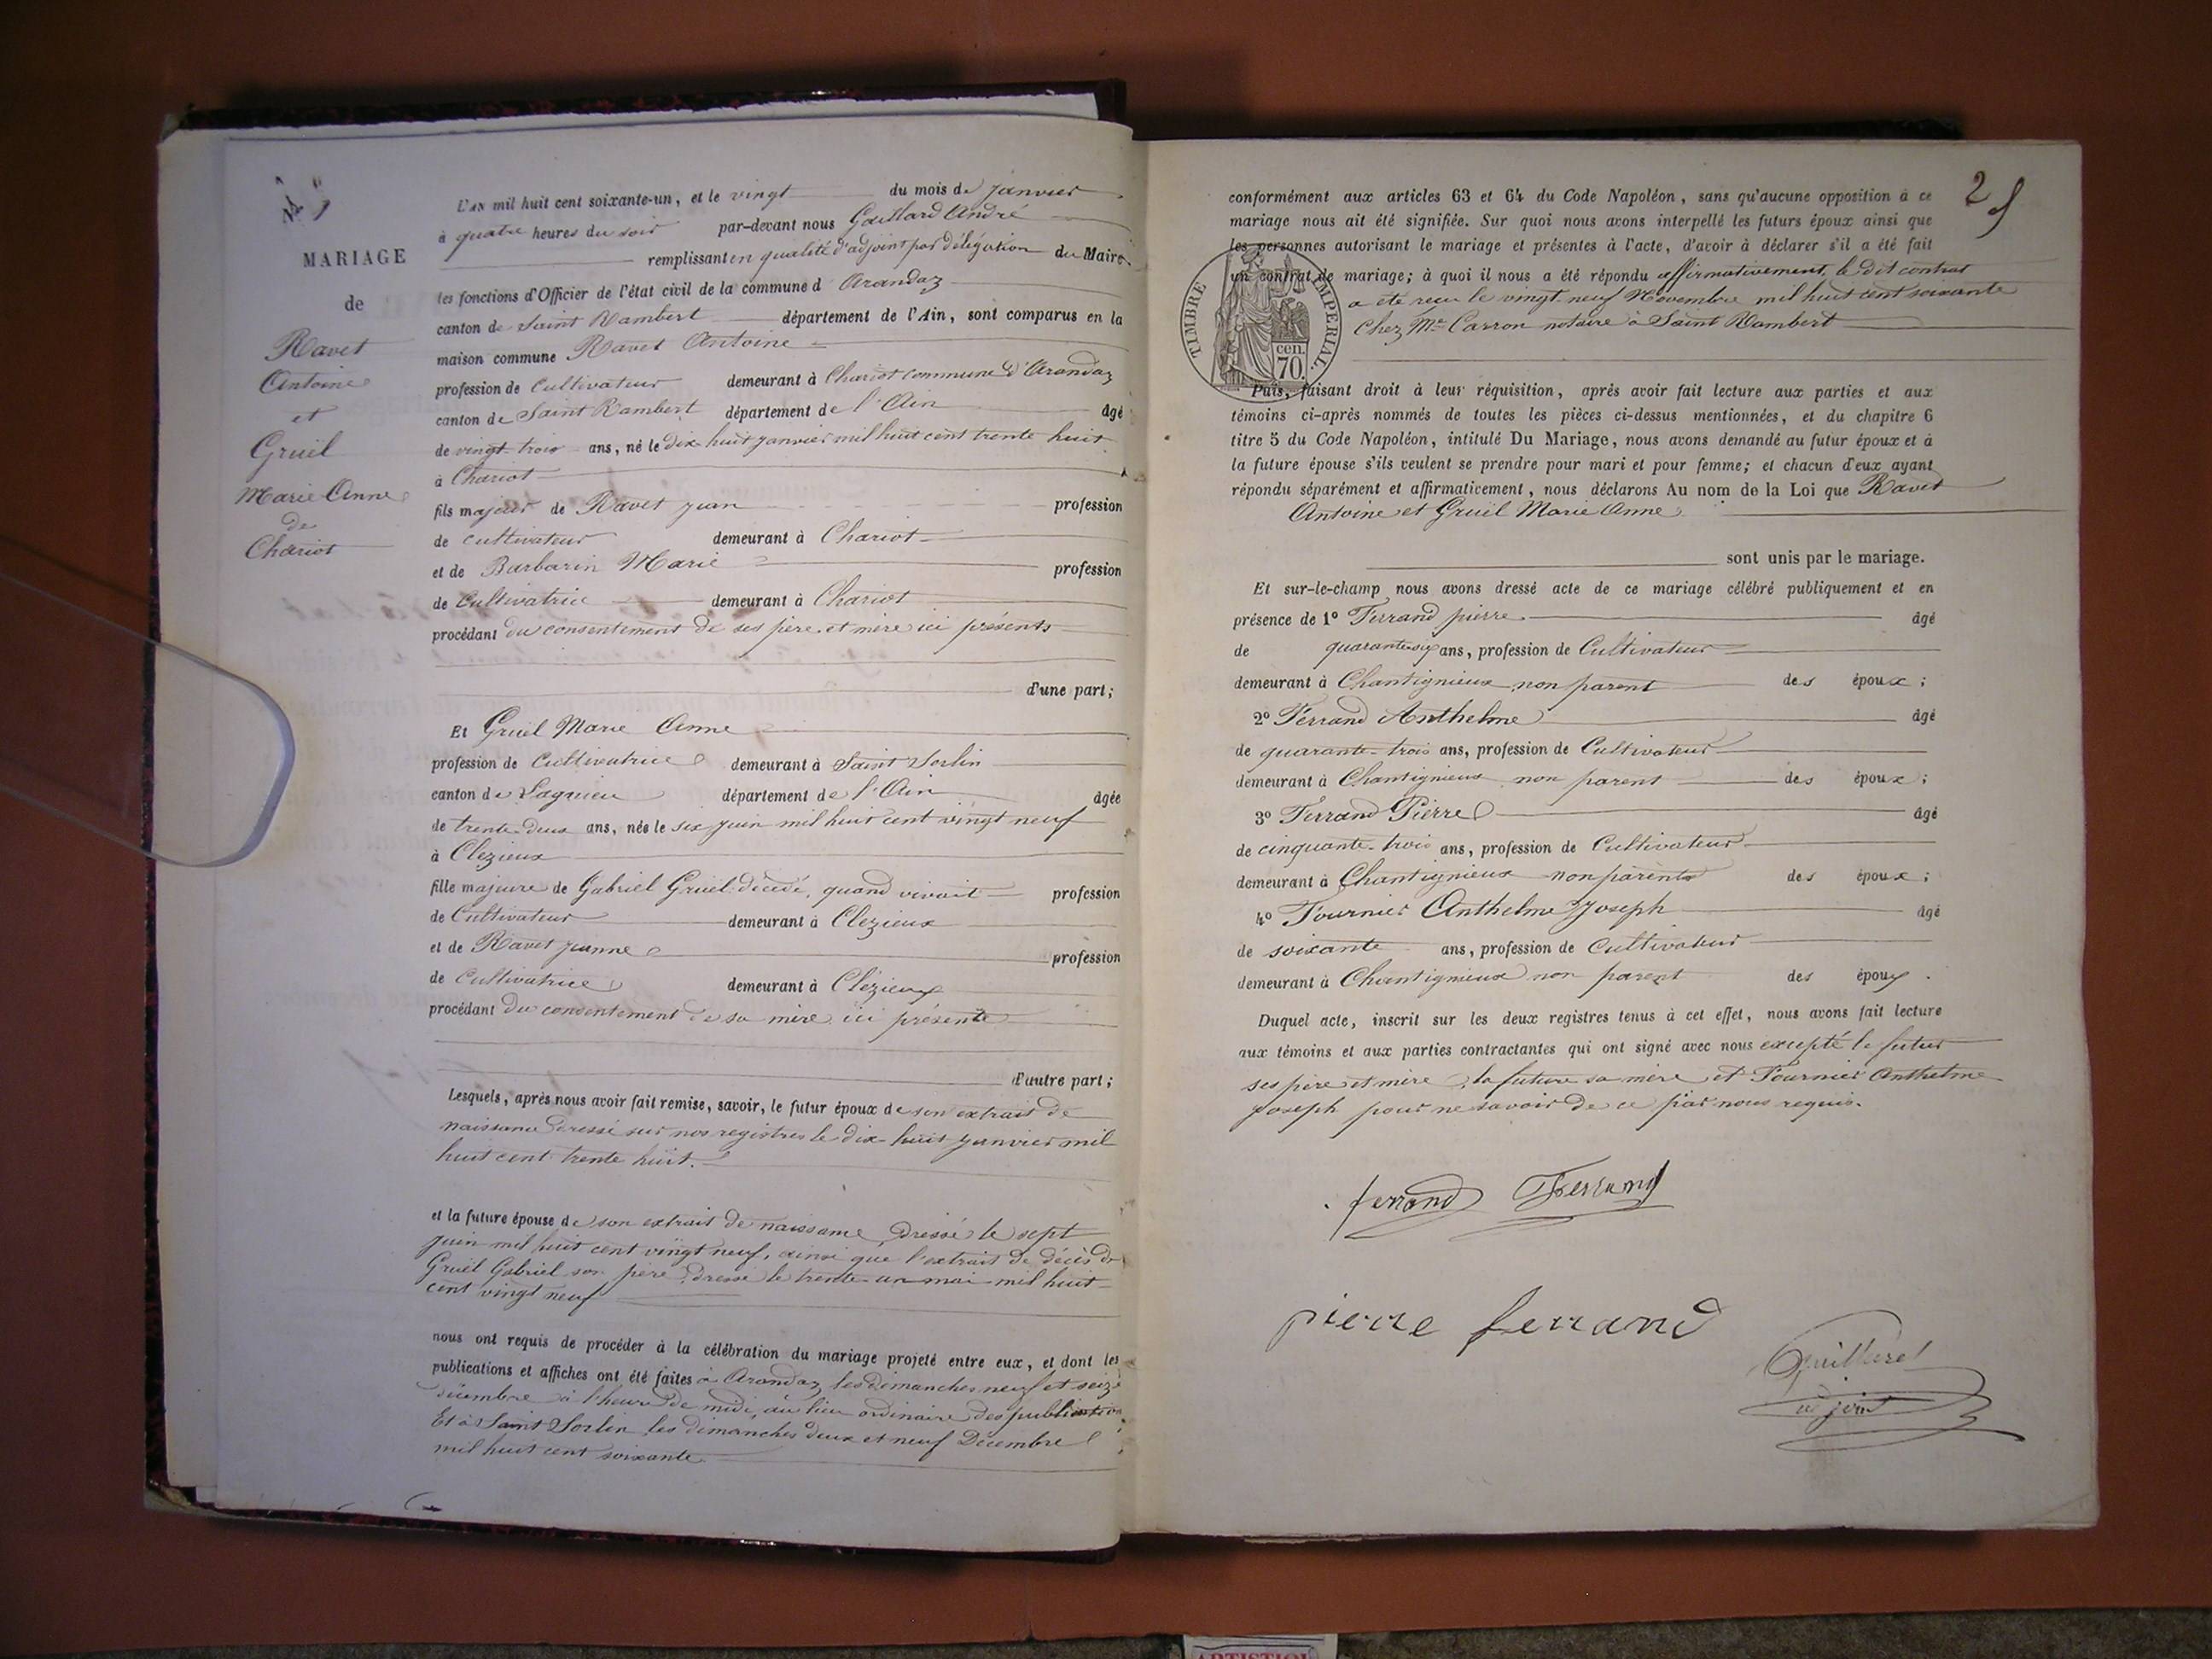 N° 1
MARIAGE
de
Ravet
Antoine
et
Gruel
Marie Anne
de
Chariot
L'AN mil huit cent soixante-un, et le vingt du mois de Janvier
à quatre heures du soir par-devant nous Gaillard André
remplissant en qualité d'adjoint par délégation du Maire
les fonctions d'Officier de l'état civil de la commune d Arandaz
canton de Saint Rambert département de l'Ain, sont comparus en la
maison commune Ravet Antoine
profession de Cultivateur demeurant à Chariot commune d'Arandaz
canton de Saint Rambert département de l'Ain âgé
de vingt-trois ans, né le dix-huit janvier mil huit cent trente huit
à Chariot
fils majeur de Ravet Jean profession
de cultivateur demeurant à Chariot
et de Barbarin Marie profession
de Cultivatrice demeurant à Chariot
procédant du consentement de ses père et mère ici présents
d'une part;
Et Gruel Marie Anne
profession de Cultivatrice demeurant à Saint Sorlin
canton de Lagnieu département de l'Ain âgée
de trente-deux ans, née le six juin mil huit cent vingt neuf
à Clezieux
fille majeure de Gabriel Gruel décédé, quand vivait profession
de Cultivateur demeurant à Clezieux
et de Ravet Jeanne profession
de Cultivatrice demeurant à Clezieux
procédant du consentement de sa mère ici présente
d'autre part;
Lesquels, après nous avoir fait remise, savoir, le futur époux de son extrait de
naissance dressé sur nos registres le dix-huit janvier mil
huit cent trente huit.
et la future épouse de son extrait de naissance, dressé le sept
juin mil huit cent vingt neuf, ainsi que l'extrait de décès de
Gruel Gabriel son père dressé le trente-un mai mil huit
cent vingt neuf
nous ont requis de procéder à la célébration du mariage projeté entre eux, et dont les
publications et affiches ont été faites à Arandaz les dimanches neuf et seize
décembre à l'heure de midi, au lieu ordinaire des publication
Et à Saint Sorlin les dimanches deux et neuf Décembre
mil huit cent soixante
25
conformément aux articles 63 et 64 du Code Napoléon, sans qu'aucune opposition à ce
mariage nous ait été signifiée. Sur quoi nous avons interpellé les futurs époux ainsi que
les personnes autorisant le mariage et présentes à l'acte, d'avoir à déclarer s'il a été fait
un contrat de mariage; à quoi il nous a été répondu affirmativement, le dit contrat
a été reçu le vingt neuf Novembre mil huit cent soixante
Chez Me Carron notaire à Saint Rambert
TIMBRE IMPERIAL.
cen.
70.
Puis, faisant droit à leur réquisition, après avoir fait lecture aux parties et aux
témoins ci-après nommés de toutes les pièces ci-dessus mentionnées, et du chapitre 6
titre 5 du Code Napoléon, intitulé Du Mariage, nous avons demandé au futur époux et à
la future épouse s'ils veulent se prendre pour mari et pour femme; et chacun d'eux ayant
répondu séparément et affirmativement, nous déclarons Au nom de la Loi que Ravet
Antoine et Gruel Marie Anne
sont unis par le mariage.
Et sur-le-champ nous avons dressé acte de ce mariage célébré publiquement et en
présence de 1° Ferrand pierre âgé
de quarante six ans, profession de Cultivateur
demeurant à Chantignieux non parent des époux;
2° Ferrand Anthelme âgé
de quarante-trois ans, profession de Cultivateur
demeurant à Chantignieux non parent des époux;
3° Ferrand Pierre âgé
de cinquante-trois ans, profession de Cultivateur
demeurant à Chantignieux non parents des époux;
4° Fournier Anthelme Joseph âgé
de soixante ans, profession de Cultivateur
demeurant à Chantignieux non parent des époux.
Duquel acte, inscrit sur les deux registres tenus à cet effet, nous avons fait lecture
aux témoins et aux parties contractantes qui ont signé avec nous excepté le futur
ses père et mère, la future sa mère et Fournier Anthelme
Joseph pour ne savoir de ce par nous requis.
ferrand Ferrand
pierre ferrand
adjoint